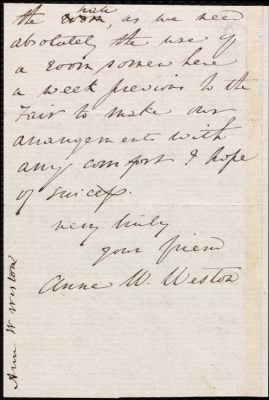 the room, as we need
absolutely the use of
a room somewhere
a week previous to the
Fair to make our
arrangements with
any comfort & hope
of success.
very truly
your friend
Anne W. Weston
Ann W Weston